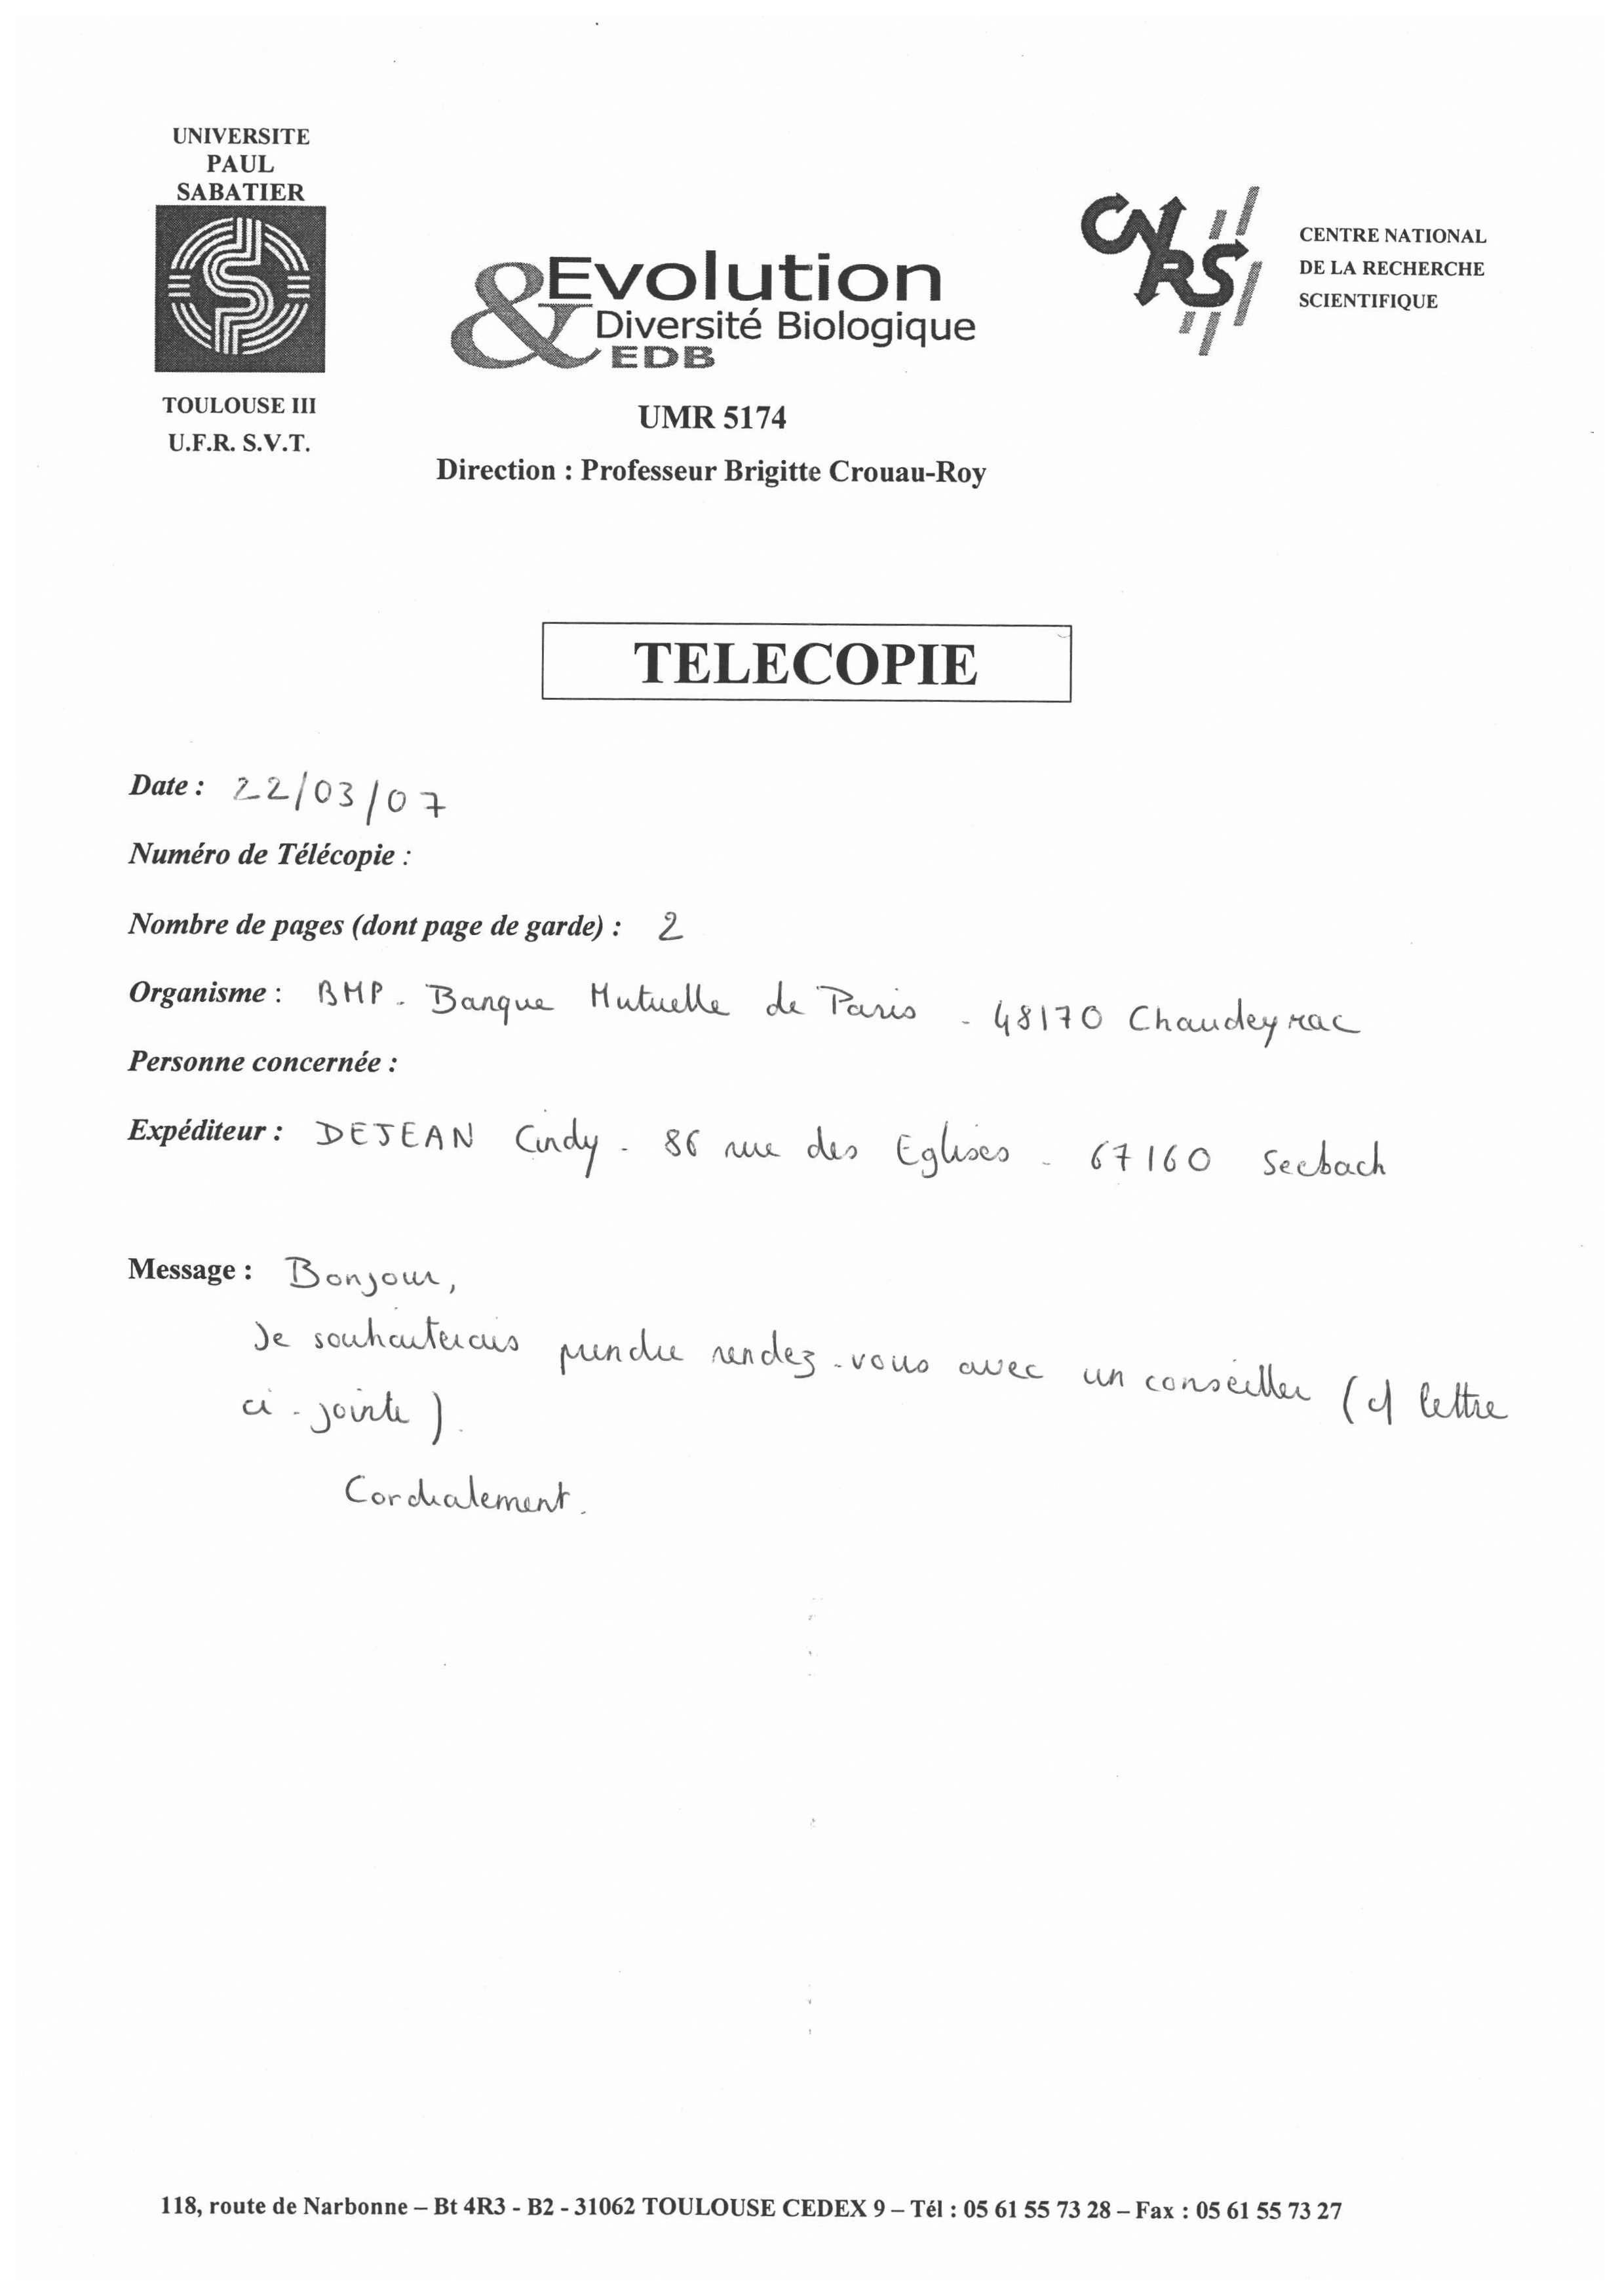 UNIVERSITE
PAUL
SABATIER
TOULOUSE III
U.F.R. S.V.T.
&Evolution
Diversité Biologique
EDB
UMR 5174
Direction : Professeur Brigitte Crouau-Roy
CNRS
CENTRE NATIONAL
DE LA RECHERCHE
SCIENTIFIQUE
TELECOPIE
Date : 22/03/07
Numéro de Télécopie :
Nombre de pages (dont page de garde) : 2
Organisme : BMP - Banque Mutuelle de Paris - 48170 Chaudeyrac
Personne concernée :
Expéditeur : DEJEAN Cindy - 86 rue des Eglises - 67160 Seebach
Message : Bonjour,
Je souhaiterais prendre rendez-vous avec un conseiller (cf lettre
ci-jointe).
Cordialement.
118, route de Narbonne – Bt 4R3 - B2 - 31062 TOULOUSE CEDEX 9 – Tél : 05 61 55 73 28 – Fax : 05 61 55 73 27